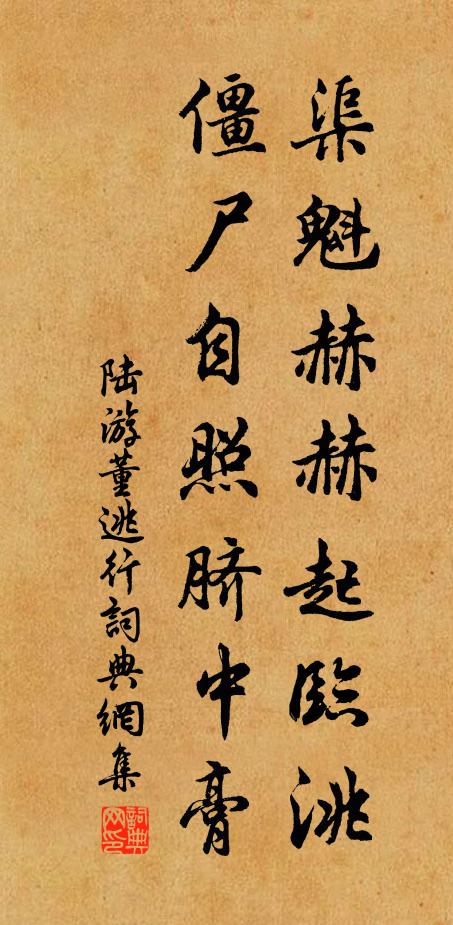 渠魁赫赫起臨洮
僵尸自照脐中膏
陆游董逃行詞典網集
詞典网印